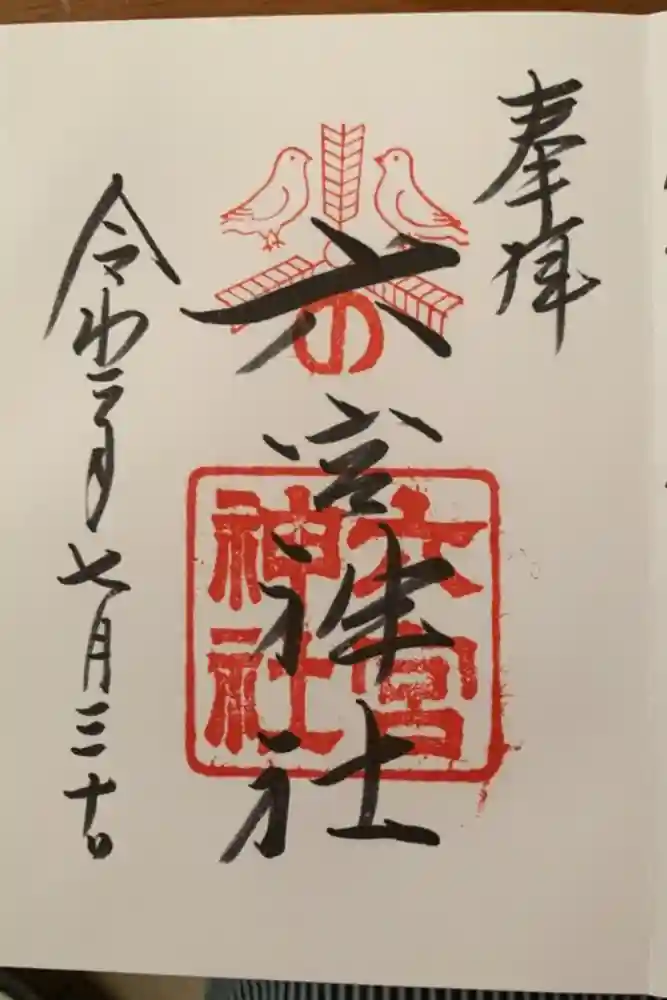 奉拝
六宮神社
令和 年七月三十日
六宮
神社